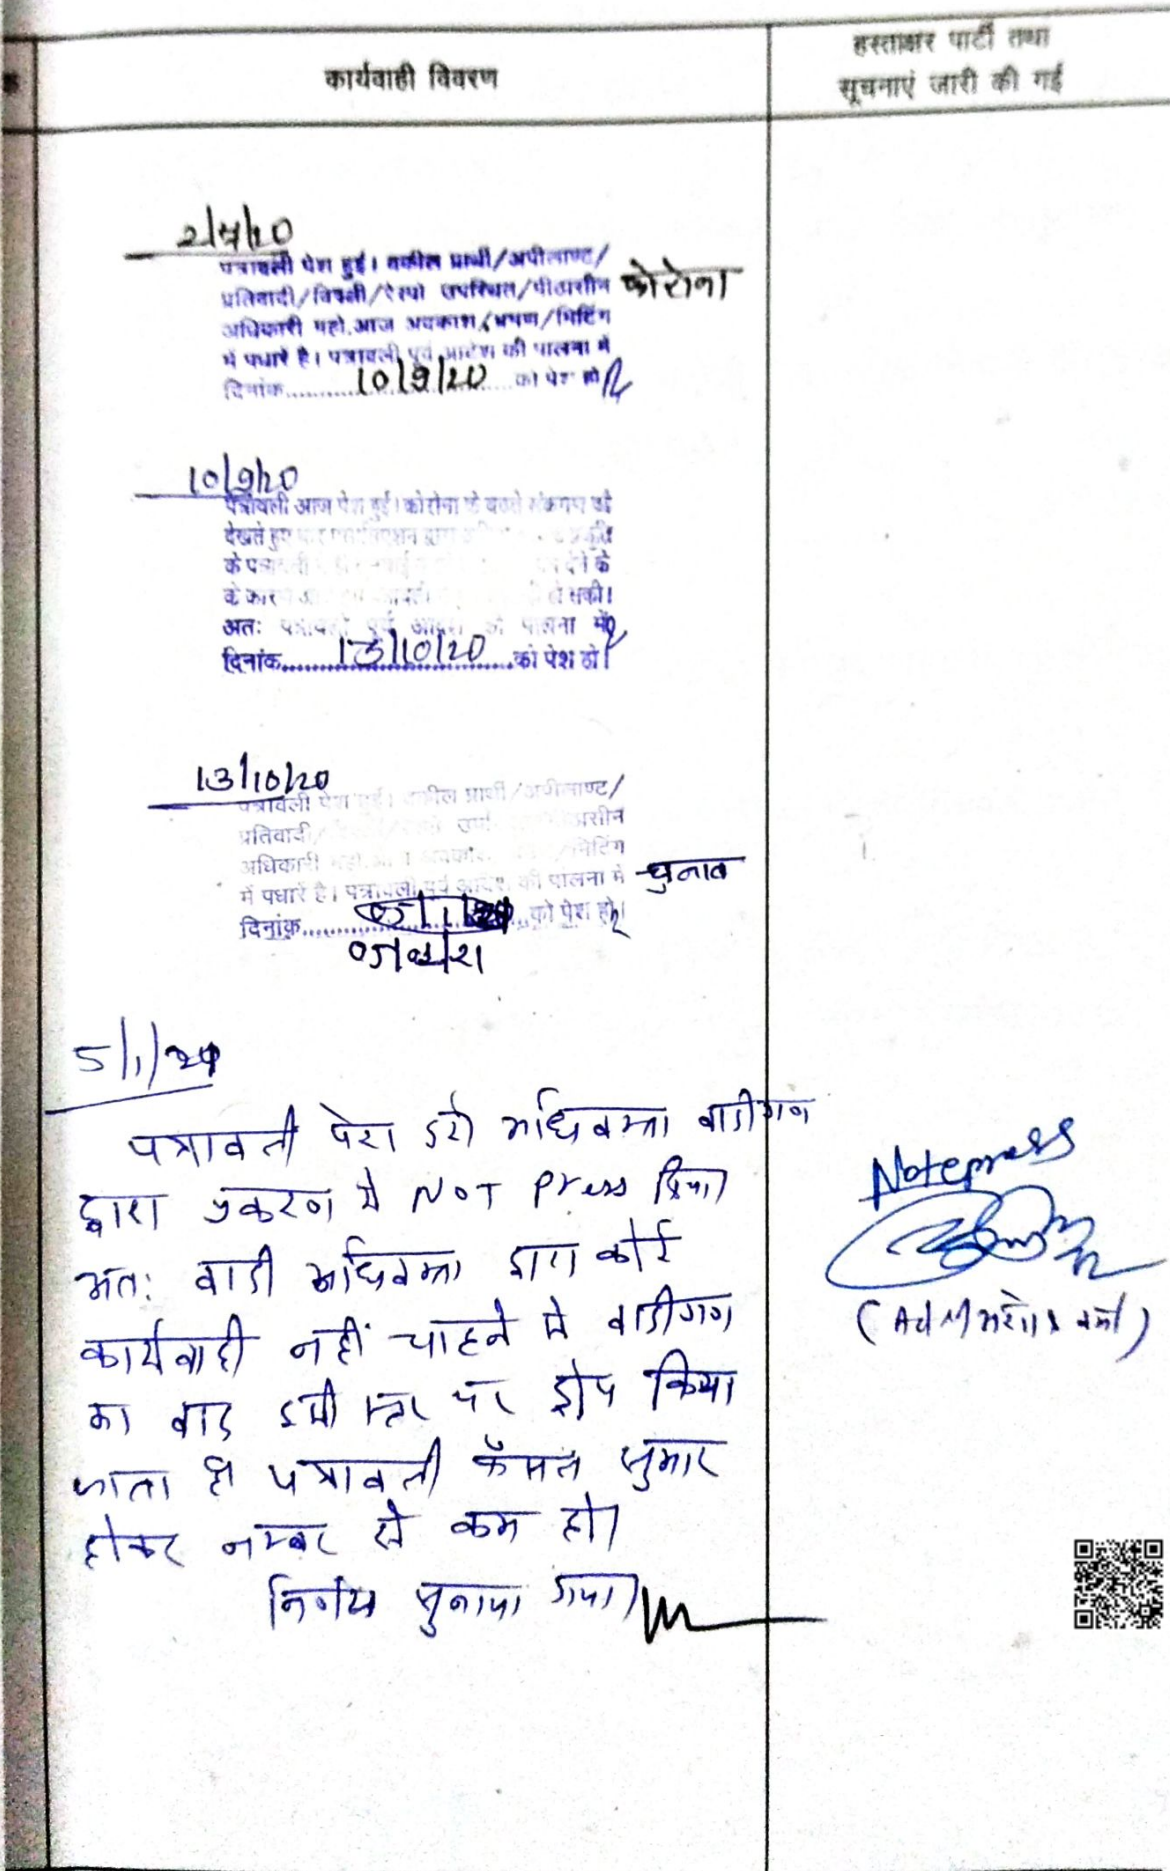 कार्यवाही विवरण
हस्ताक्षर पार्टी तथा
सूचनाएं जारी की गई
पत्रावली पेश हुई। वकील प्रार्थी/अपीलाण्ट/
प्रतिवादी/विपक्षी/रेस्पो उपस्थित/पीठासीन कोरोना
अधिकारी महो.आज अवकाश/भ्रमण/मिटिंग
में पधारें है। पत्रावली पूर्व आदेश की पालना में
दिनांक 10/9/20 को पेश हो
10/9/20
पत्रावली आज पेश हुई। कोरोना के बढते संक्रमण को
देखते हुए बार द्वारा
के देने के
के कारण हो सकी।
अतः पत्रावली पूर्व आदेश की पालना में
दिनांक 13/10/20 को पेश हो।
13/10/20
पत्रावली पेश हुई। वकील प्रार्थी/अपीलाण्ट/
प्रतिवादी/
अधिकारी अवकाश /मिटिंग
में पधारें है। पत्रावली पूर्व आदेश की पालना में चुनाव
दिनांक को पेश हो।
5/1/21
पत्रावली पेश हुई अधिवक्ता वादीगण
द्वारा प्रकरण में NOT Press किया।
अतः वादी अधिवक्ता द्वारा कोई
कार्यवाही नहीं चाहने से वादीगण
का वाद इसी स्तर पर ड्रोप किया
जाता है पत्रावली फैसल सुमार
होकर नम्बर से कम हो।
निर्णय सुनाया गया।
Notepress